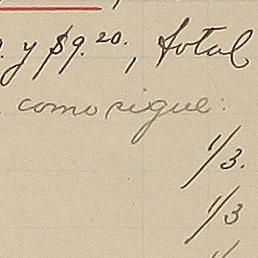 y $9.20., total
como sigue:
1/3.
1/3